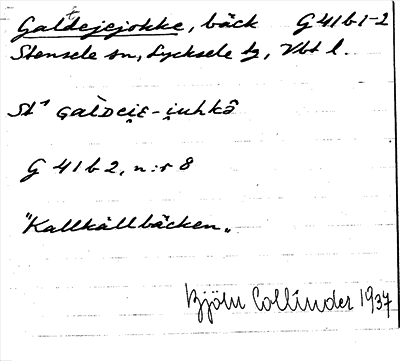 Galdejejokke, bäck G 41 b 1-2
Stensele sn, Lycksele tg, Vbt l.
St¹ GALDEI̯E-i̯uhkô
G 41 b 2, n:r 8
"Kallkällbäcken„
Björn Collinder 1937